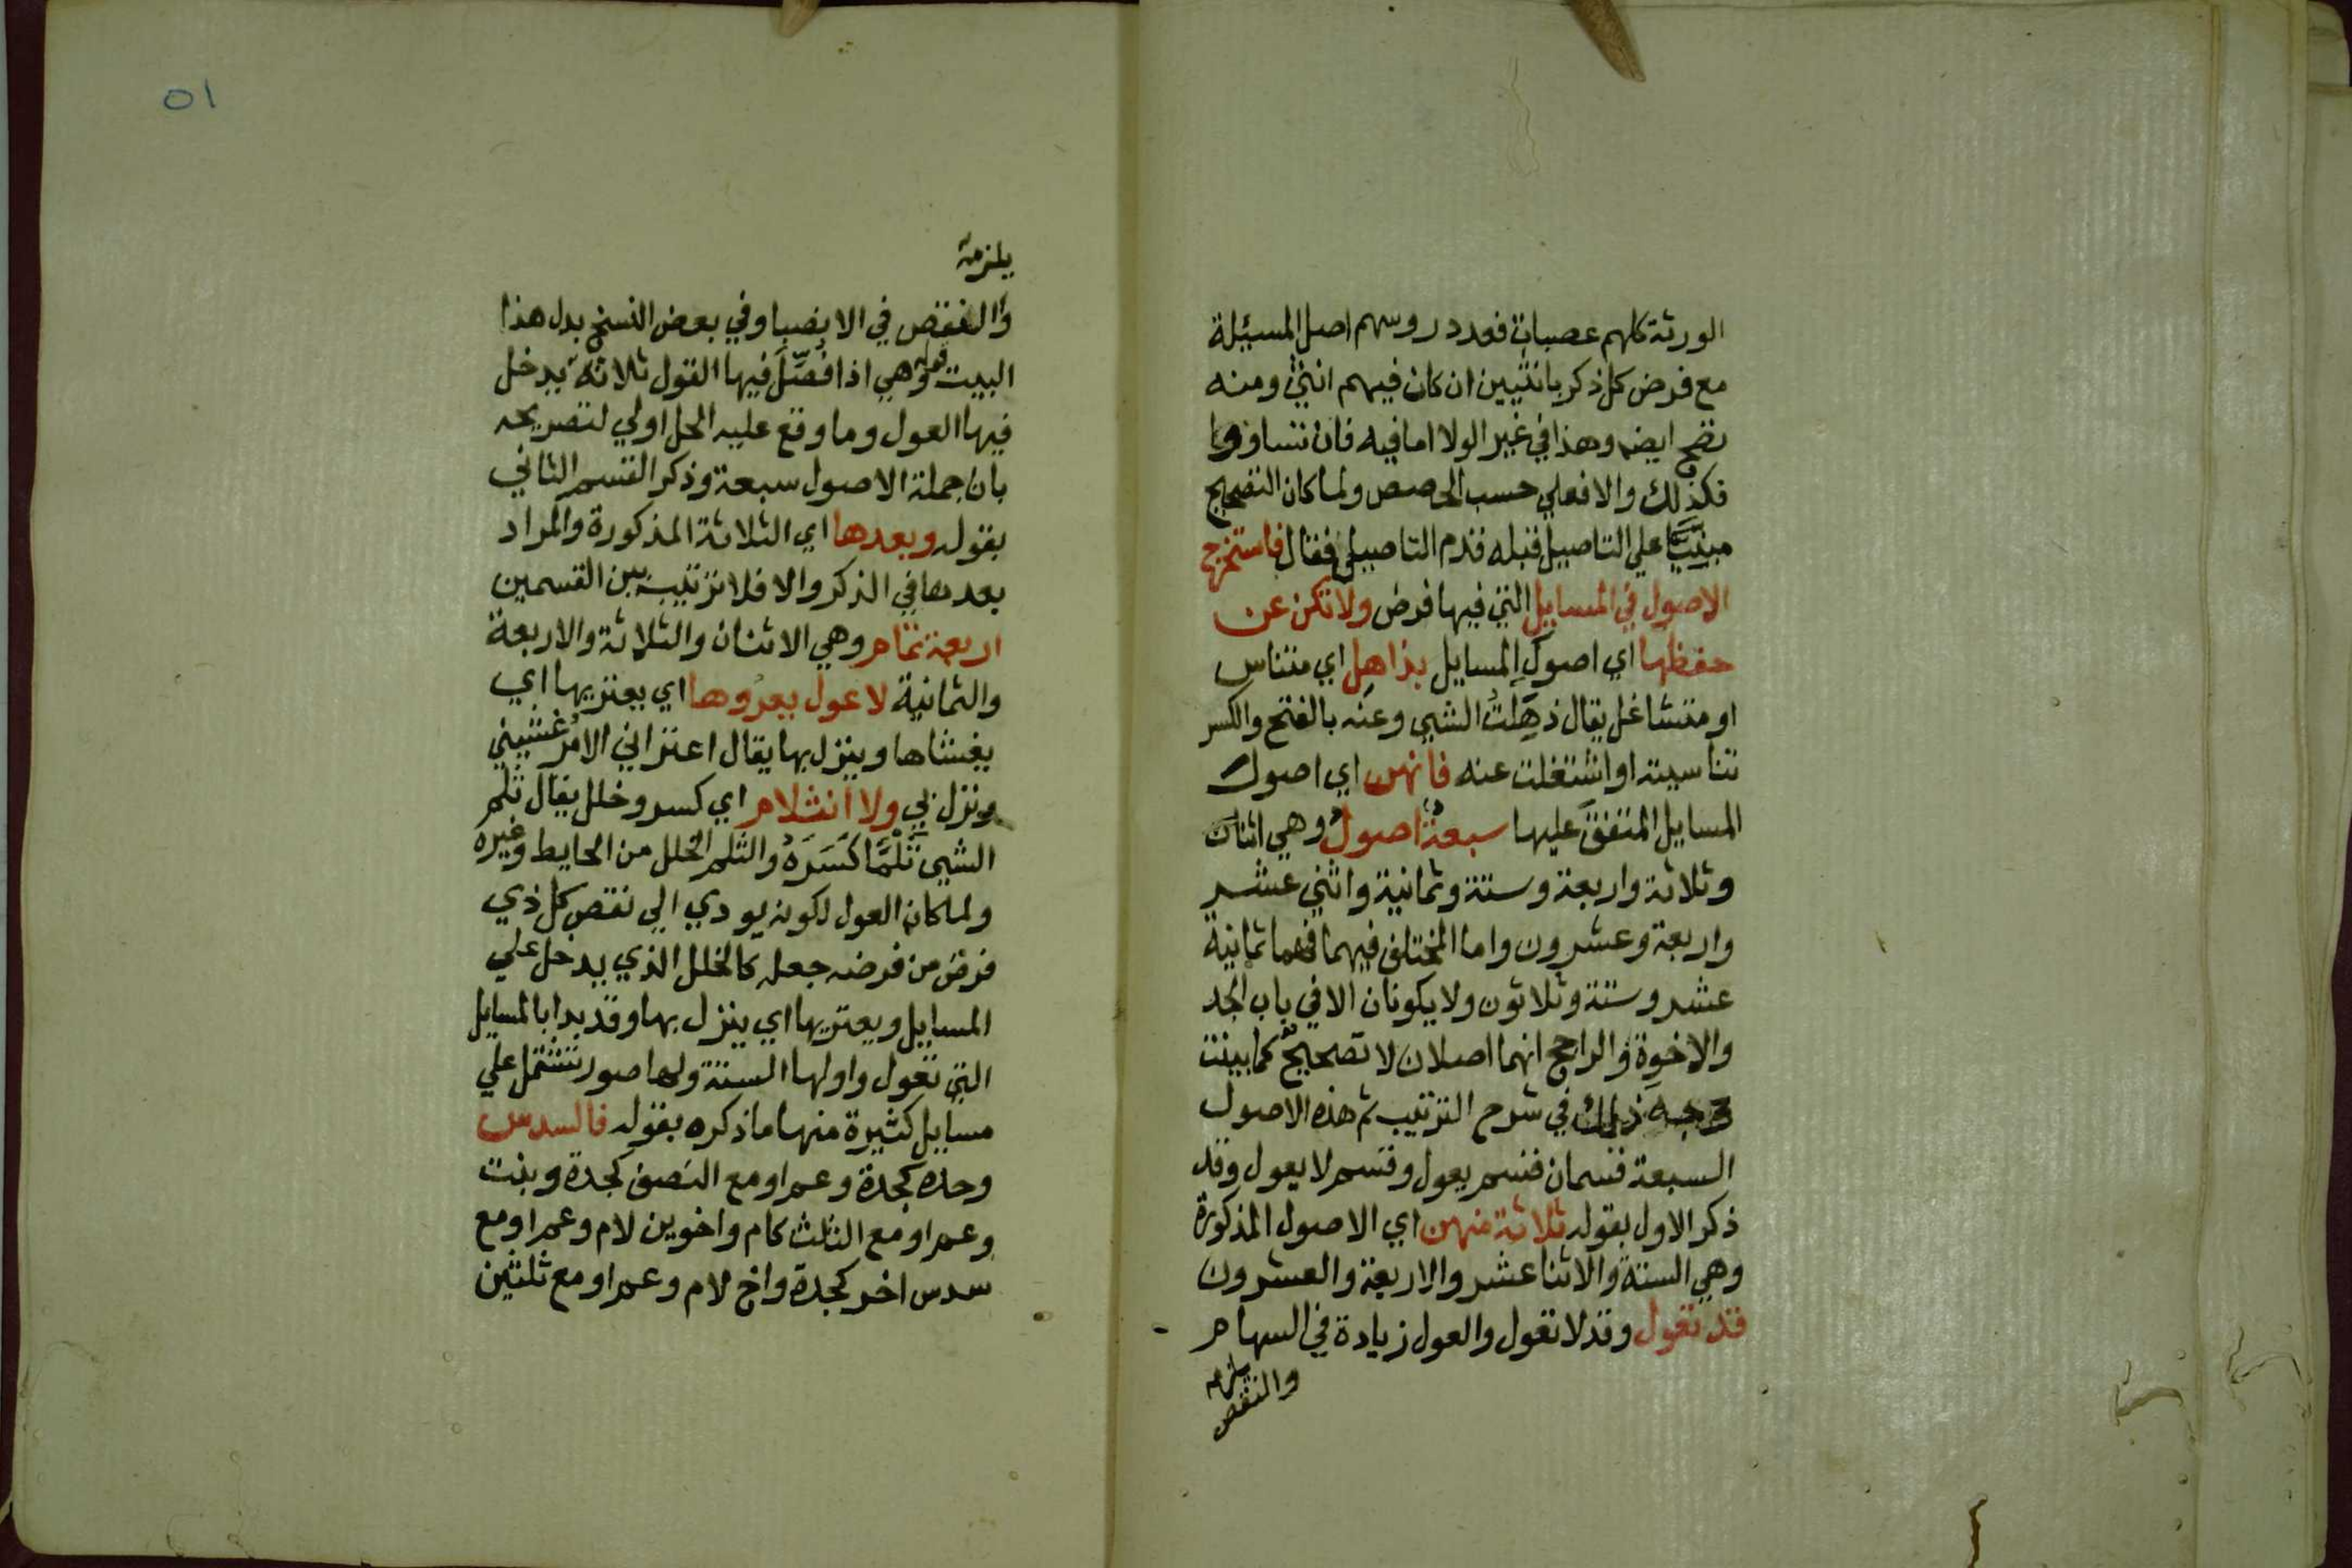 الورثة كلهم عصبات فعدد روسهم اصل المسيلة
مع فرض كل ذكر بانثيين ان كان فيهم انثي ومنه
تصح ايضه وهذا في غير الولا اما فيه فان تساووا
فكذلك والا فعلي حسب الحصص ولما كان التصحيح
مبنيا علي التاصيل قبله قدم التاصيل فقال فاستخرج
الاصول في المسايل التي فيها فرض ولا تكن عن
حفظها اي اصول المسايل بذاهل اي متناس
او متشاغل يقال ذهلت الشيي وعنه بالفتح والكسر
تناسيته او اشتغلت عنه فانهن اي اصول
المسايل المتفق عليها سبعة اصول وهي اثنان
وثلاثة واربعة وستة وثمانية واثني عشر
واربعة وعشرون واما المختلف فيهما فهما ثمانية
عشر وستة وثلاثون ولا يكونان الا في باب الجد
والاخوة والراجح انهما اصلان لا تصحيح كما بينت
وجه ذلك في شرح الترتيب ثم هذه الاصول
السبعة قسمان قسم يعول وقسم لا يعول وقد
ذكر الاول بقوله ثلاثة منهن اي الاصول المذكورة
وهي الستة والاثنا عشر والاربعة والعشرون
قد تعول وقد لا تعول والعول زيادة في السهام
يلزمه
والنقص
٥١
يلزمه
والنقص في الانصبا وفي بعض النسخ بدل هذا
البيت قوله وهي اذا فصل فيها القول ثلاثة يدخل
فيها العول وما وقع عليه الحل اولي لتصريحه
بان جملة الاصول سبعة وذكر القسم الثاني
بقوله وبعدها اي الثلاثة المذكورة والمراد
بعدها في الذكر والا فلا ترتيب بين القسمين
اربعة تمام وهي الاثنان والثلاثة والاربعة
والثمانية لا عول يعروها اي يعتريها اي
يغشاها وينزل بها يقال اعتراني الامر غشيني
ونزل بي ولا انثلام اي كسر وخلل يقال ثلم
الشيي ثلما كسره والثلم الخلل من الحايط وغيره
ولما كان العول لكونه يودي الي نقص كل ذي
فرض من فرضه جعله كالخلل الذي يدخل علي
المسايل ويعتريها اي ينزل بها وقد بدا بالمسايل
التي تعول واولها الستة ولها صور تشتمل علي
مسايل كثيرة منها ما ذكره بقوله فالسدس
وحده كجدة وعم او مع النصف كجدة وبنت
وعم او مع الثلث كام واخوين لام وعم او مع
سدس اخر كجدة واخ لام وعم او مع ثلثين